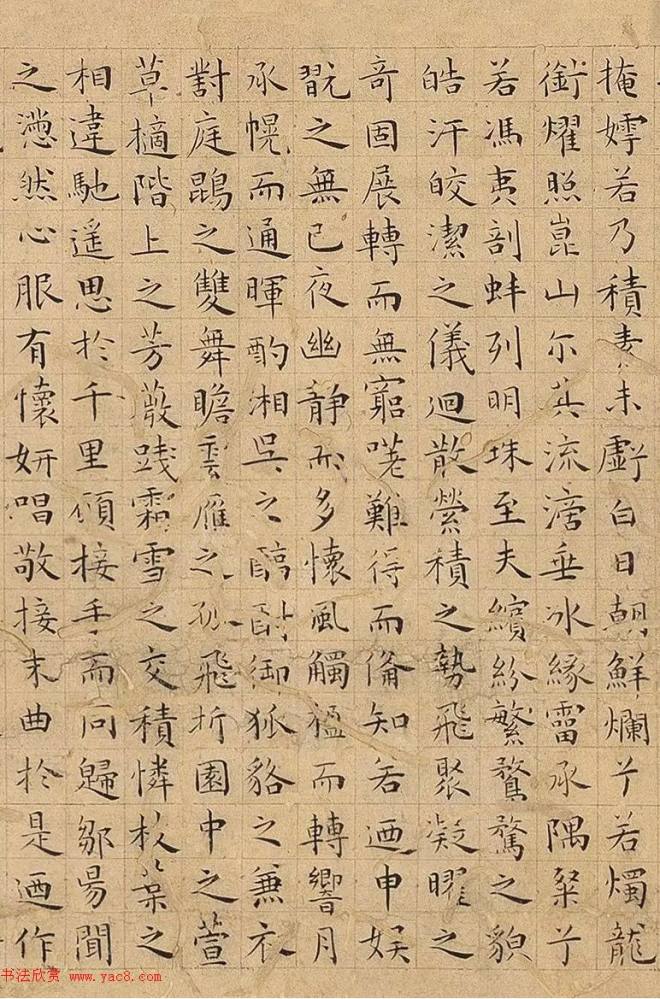 掩嫮若乃積素未虧白日朝鮮爛兮若燭龍
銜燿照崑山尔其流滴垂冰緣霤承隅粲兮
若馮夷剖蚌列明珠至夫繽紛繁騖驚之貌
皓汗皎潔之儀迴散縈積之勢飛聚凝曜之
奇固展轉而無窮嗟難得而備知若迺申娱
翫之無已夜幽静而多懷風觸楹而轉響月
承幌而通暉酌湘吴之醇酎御狐貉之兼衣
對庭鵾之雙舞瞻雲雁之孤飛折園中之萱
草摘階上之芳薇踐霜雪之交積憐枝葉之
相違馳遥思於千里願接手而同歸鄒昜聞
之懣然心服有懷妍唱敬接末曲於是迺作
书法欣赏 www.yac8.com